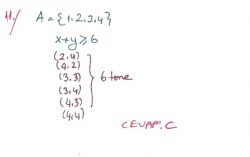 11.) A = {1,2,3,4}
x+y ≥ 6
(2,4)
(4,2)
(3,3)
(3,4)
(4,3)
(4,4)
6 tane
CEVAP: C